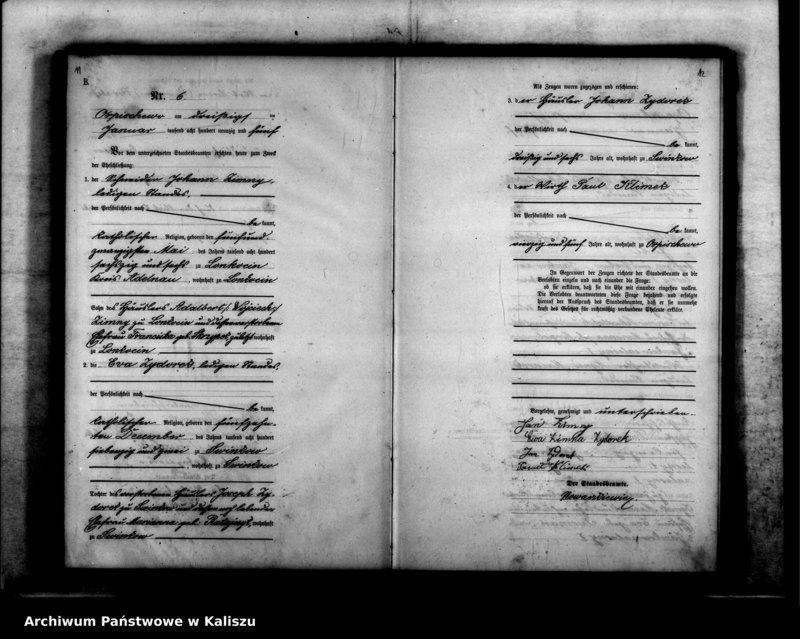 11
B.
Nr. 6
Orpischewo am dreißigsten
Januar tausend acht hundert neunzig und fünf
Vor dem unterzeichneten Standesbeamten erschienen heute zum Zweck
der Eheschließung:
1. der Schneider Johann Zimny,
ledigen Standes
der Persönlichkeit nach
be kannt,
katholischer Religion, geboren den fünfund-
zwanzigsten Mai des Jahres tausend acht hundert
sechszig und sechs zu Lonkocin
Kreis Adelnau, wohnhaft zu Lonkocin
Sohn des Häuslers Adalbert /Wojciech/
Zimny zu Lonkocin und dessen verstorbenen
Ehefrau Franciska geb. Skrzypek, zuletzt wohnhaft
zu Lonkocin
2. die Eva Zydorek, ledigen Standes
der Persönlichkeit nach
be kannt,
katholischer Religion, geboren den fünfzehn-
ten December des Jahres tausend acht hundert
siebenzig und zwei zu Swinkow
wohnhaft zu Swinkow
Tochter des verstorbenen Häuslers Joseph Zy-
dorek zu Swinkow und dessen noch lebenden
Ehefrau Marianna geb. wohnhaft
zu Swinkow
12
Als Zeugen waren zugezogen und erschienen:
3. der Häusler Johann Zydorek
der Persönlichkeit nach
be kannt,
dreißig und sechs Jahre alt, wohnhaft zu Swinkow
4. der Wirth Paul Klimek
der Persönlichkeit nach
be kannt,
vierzig und fünf Jahre alt, wohnhaft zu Orpischewo
In Gegenwart der Zeugen richtete der Standesbeamte an die
Verlobten einzeln und nach einander die Frage:
ob sie erklären, daß sie die Ehe mit einander eingehen wollen.
Die Verlobten beantworteten diese Frage bejahend und erfolgte
hierauf der Ausspruch des Standesbeamten, daß er sie nunmehr
kraft des Gesetzes für rechtmäßig verbundene Eheleute erkläre.
Vorgelesen, genehmigt und unterschrieben.
Jan Zimny
Ewa Zimna Zydorek
Jan
Klimek
Der Standesbeamte.
Nowankiewicz
Archiwum Państwowe w Kaliszu